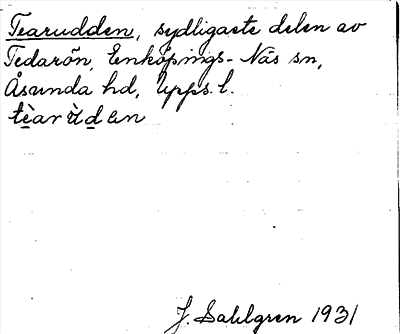 Tearudden, sydligaste delen av
Tedarön, Enköpings-Näs sn,
Åsunda hd, Upps. l.
tèar ùdan
J. Sahlgren 1931